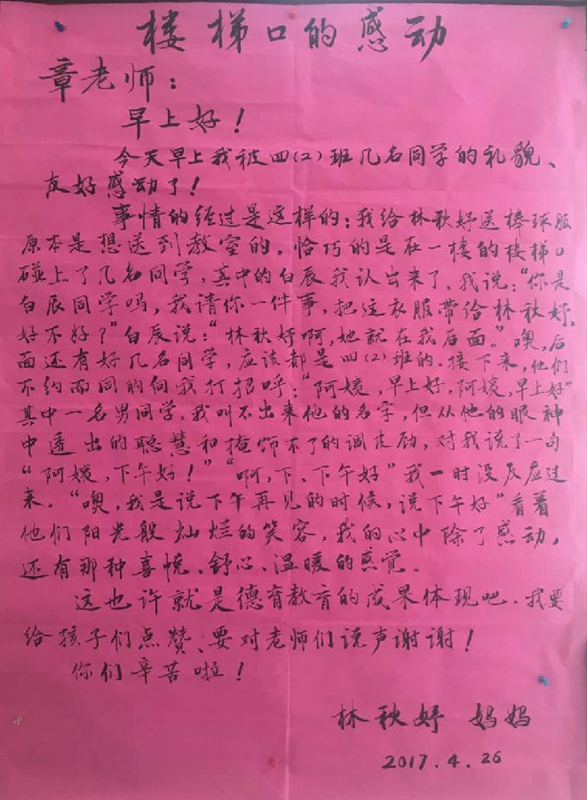 楼梯口的感动
章老师：
早上好！
今天早上我被四(2)班几名同学的礼貌、
友好感动了！
事情的经过是这样的：我给林秋妤送棒球服
原本是想送到教室的。恰巧的是在一楼的楼梯口
碰上了几名同学，其中的白辰我认出来了，我说：“你是
白辰同学吗，我请你一件事，把这衣服带给林秋妤，
好不好？”白辰说：“林秋妤啊，她就在我后面。”噢，后
面还有好几名同学，应该都是四(2)班的。接下来，他们
不约而同的向我打招呼：“阿姨，早上好，阿姨，早上好”
其中一名男同学，我叫不出来他的名字，但从他的眼神
中透出的聪慧和掩饰不了的调皮劲，对我说了一句
“阿姨，下午好！”“啊，下、下午好”我一时没反应过
来。“噢，我是说下午再见的时候，说下午好”看着
他们阳光般灿烂的笑容，我的心中除了感动，
还有那种喜悦、舒心、温暖的感觉。
这也许就是德育教育的成果体现吧。我要
给孩子们点赞、要对老师们说声谢谢！
你们辛苦啦！
林秋妤 妈妈
2017.4.26